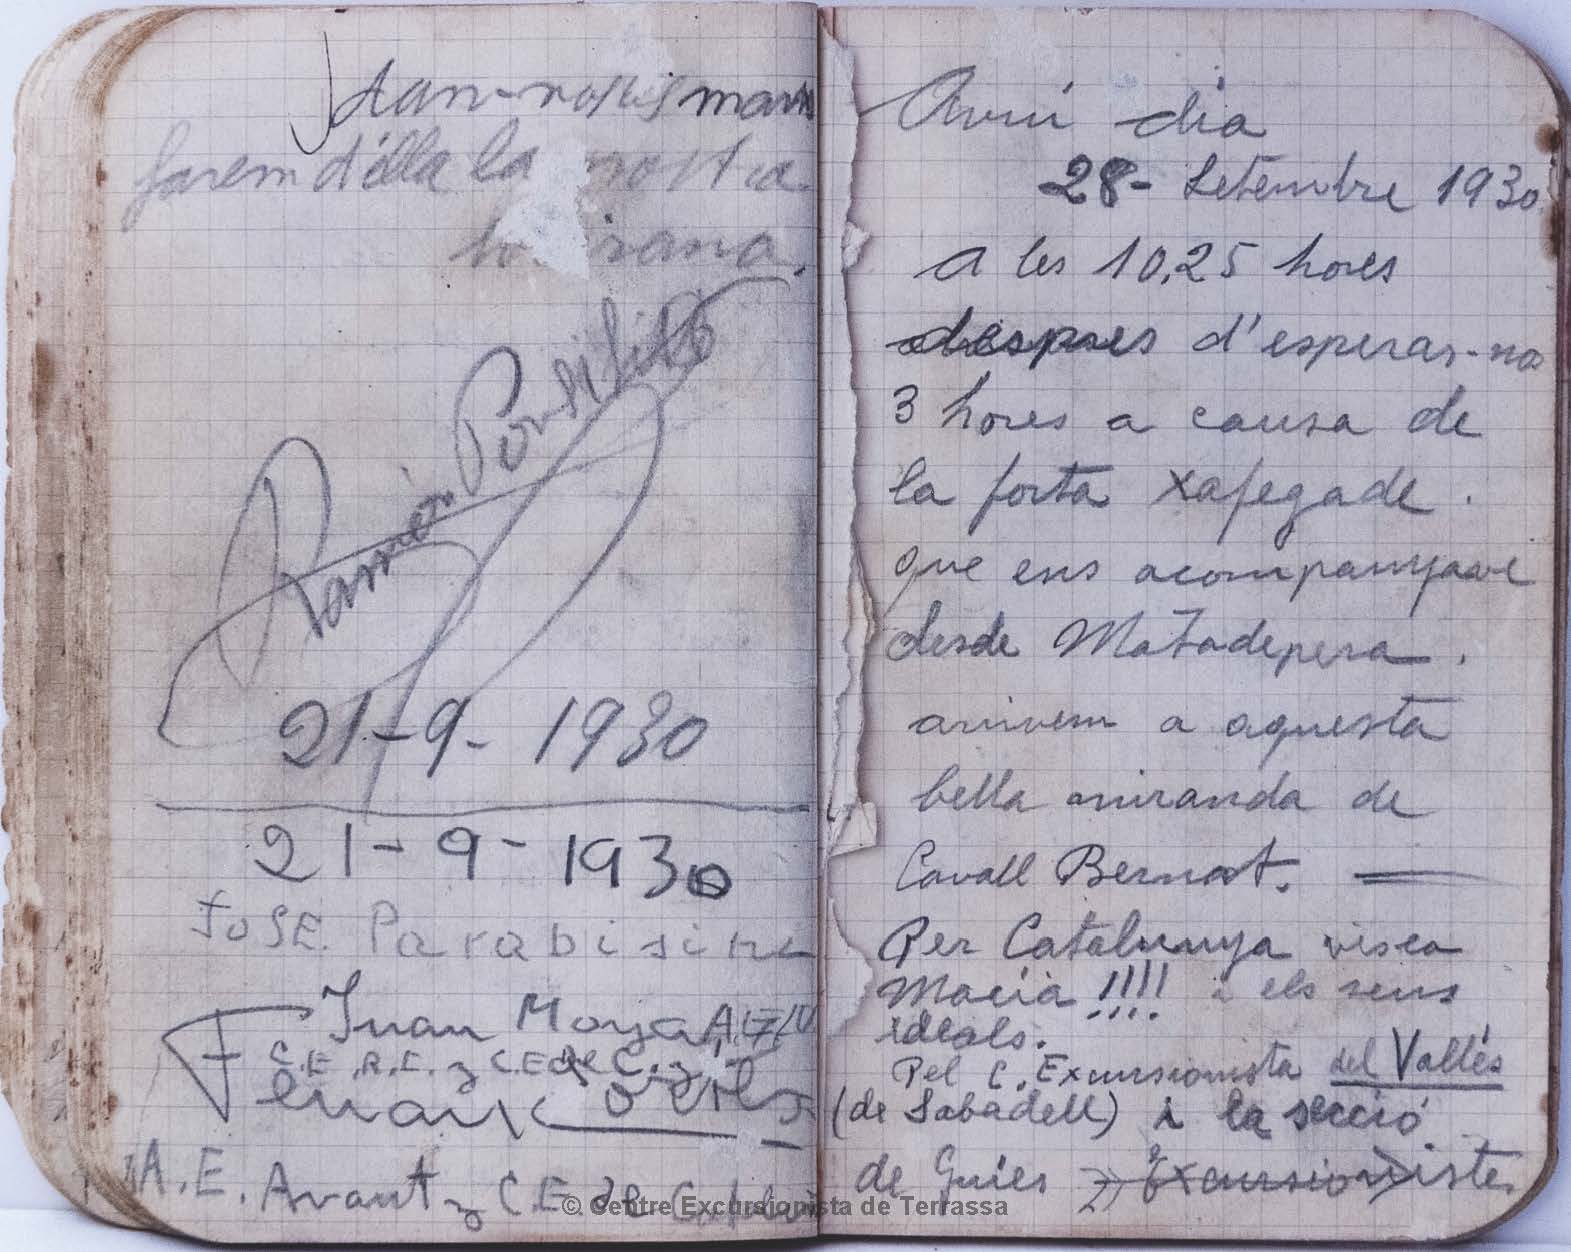 farem d'élla la nostra
Ramón
21-9-1930
21-9-1930
JOSE.
Juan Moya
C.E.R.E. y C.E de C. y
A.E. Avant y C.E de
Avui dia
28- Setembre 1930
a les 10,25 hores
despues d'esperar-no
3 hores a causa de
la forta xafegade.
que ens acompanyave
desde Matadepera.
arrivem a aquesta
bella miranda de
Cavall Bernat.
Per Catalunya visca
Macià !!!! i els seus
ideals.
Pel C. Excursionista del Vallés
(de Sabadell) i la secció
de Guíes Excursioniste
© Centre Excursionista de Terrassa